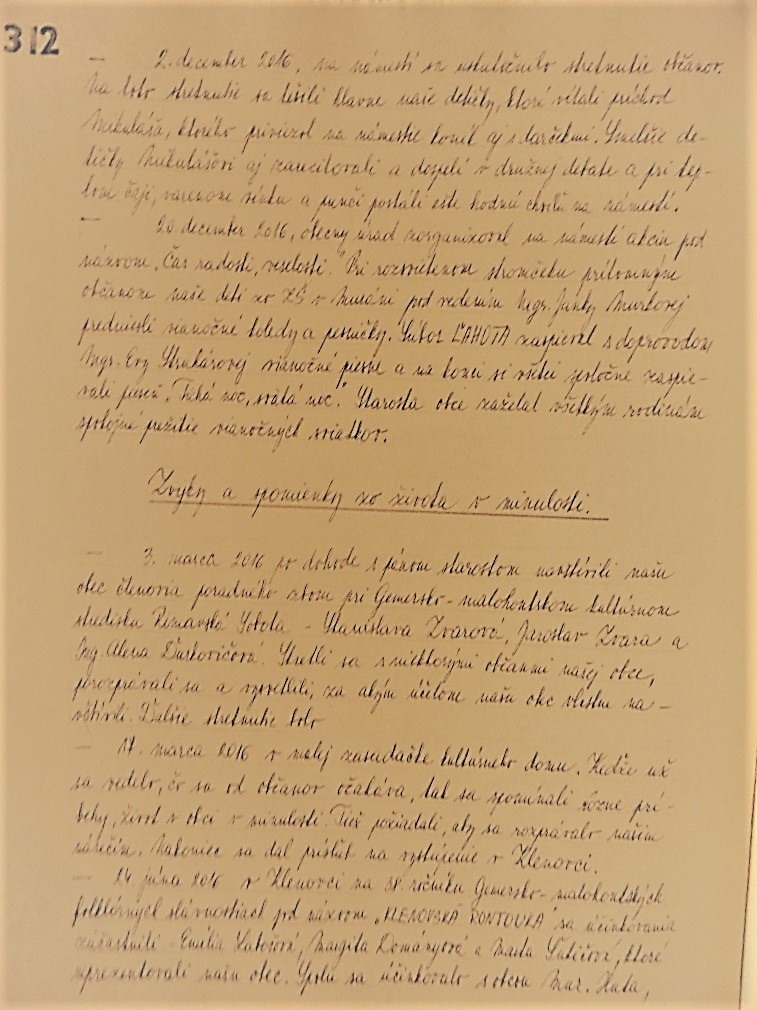 312
— 2. december 2016, na námestí sa uskutočnilo stretnutie občanov.
Na toto stretnutie sa tešili hlavne naše detičky, ktoré vítali príchod
Mikuláša, ktorého priviezol na námestie koník aj s darčekmi. Smelšie de-
tičky Mikulášovi aj zarecitovali a dospelí v družnej debate a pri tep-
lom čaji, varenom vínku a punči postáli ešte hodnú chvíľu na námestí.
— 20. december 2016, obecný úrad zorganizoval na námestí akciu pod
názvom „Čas radosti, veselosti." Pri rozsvietenom stromčeku prítomným
občanom naše deti zo ZŠ v Muráni pod vedením Mgr. Janky Murkovej
predniesli vianočné koledy a pesničky. Súbor ĽAHOTA zaspieval s doprovodom
Mgr. Evy Strukárovej vianočné piesne a na konci si všetci spoločne zaspie-
vali pieseň „Tichá noc, svätá noc." Starosta obce zaželal všetkým rodinám
spokojné prežitie vianočných sviatkov.
Zvyky a spomienky zo života v minulosti.
— 3. marca 2016 po dohode s pánom starostom navštívili našu
obec členovia poradného zboru pri Gemersko-malohontskom kultúrnom
stredisku Rimavská Sobota - Stanislava Zvarová, Jaroslav Zvara a
Ing. Alena Ďurkovičová. Stretli sa s niektorými občanmi našej obce,
porozprávali sa a vysvetlili, za akým účelom našu obec vlastne na-
vštívili. Ďalšie stretnutie bolo
— 17. marca 2016 v malej zasadačke kultúrneho domu. Keďže už
sa vedelo, čo sa od občanov očakáva, tak sa spomínali rôzne prí-
behy, život v obci v minulosti. Tiež požiadali, aby sa rozprávalo našim
nárečím. Nakoniec sa dal prísľub na vystúpenie v Klenovci.
— 24. júna 2016 v Klenovci na 38. ročníku Gemersko-malohontských
folklórnych slávnostiach pod názvom „KLENOVSKÁ RONTOUKA" sa účinkovania
zúčastnili - Emília Margita Dományová a Marta ktoré
reprezentovali našu obec. Spolu sa účinkovalo s obcou Mur. Huta,